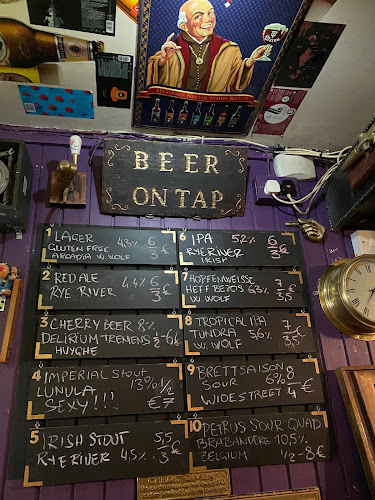 BEER
ON TAP
1 LAGER 4.3% 6
GLUTEN FREE 3€
ARCADIA W. WOLF
2 RED ALE 4.4% 6
RYE RIVER 3€
3 CHERRY BEER 8%
DELIRIUM TREMENS 1/2-6€
HUYGHE
4 IMPERIAL STOUT
LUNULA 13% 1/2
SEXY!!! €7
5 IRISH STOUT 5,5
RYE RIVER 4,5% 3€
6 IPA 5,2% 6
RYE RIVER 3€
IRISH
7 HOPFENWEISSE 7
HEFF BEZOS 6,3% 3,5€
W. WOLF
8 TROPICAL IPA 7
TUNDRA 5,6% 3,5€
W. WOLF
9 BRETT SAISON 8
SOUR 6% 4€
WIDE STREET
10 PETRUS SOUR QUAD
BRABANDERE 10,5%
BELGIUM 1/2-8€